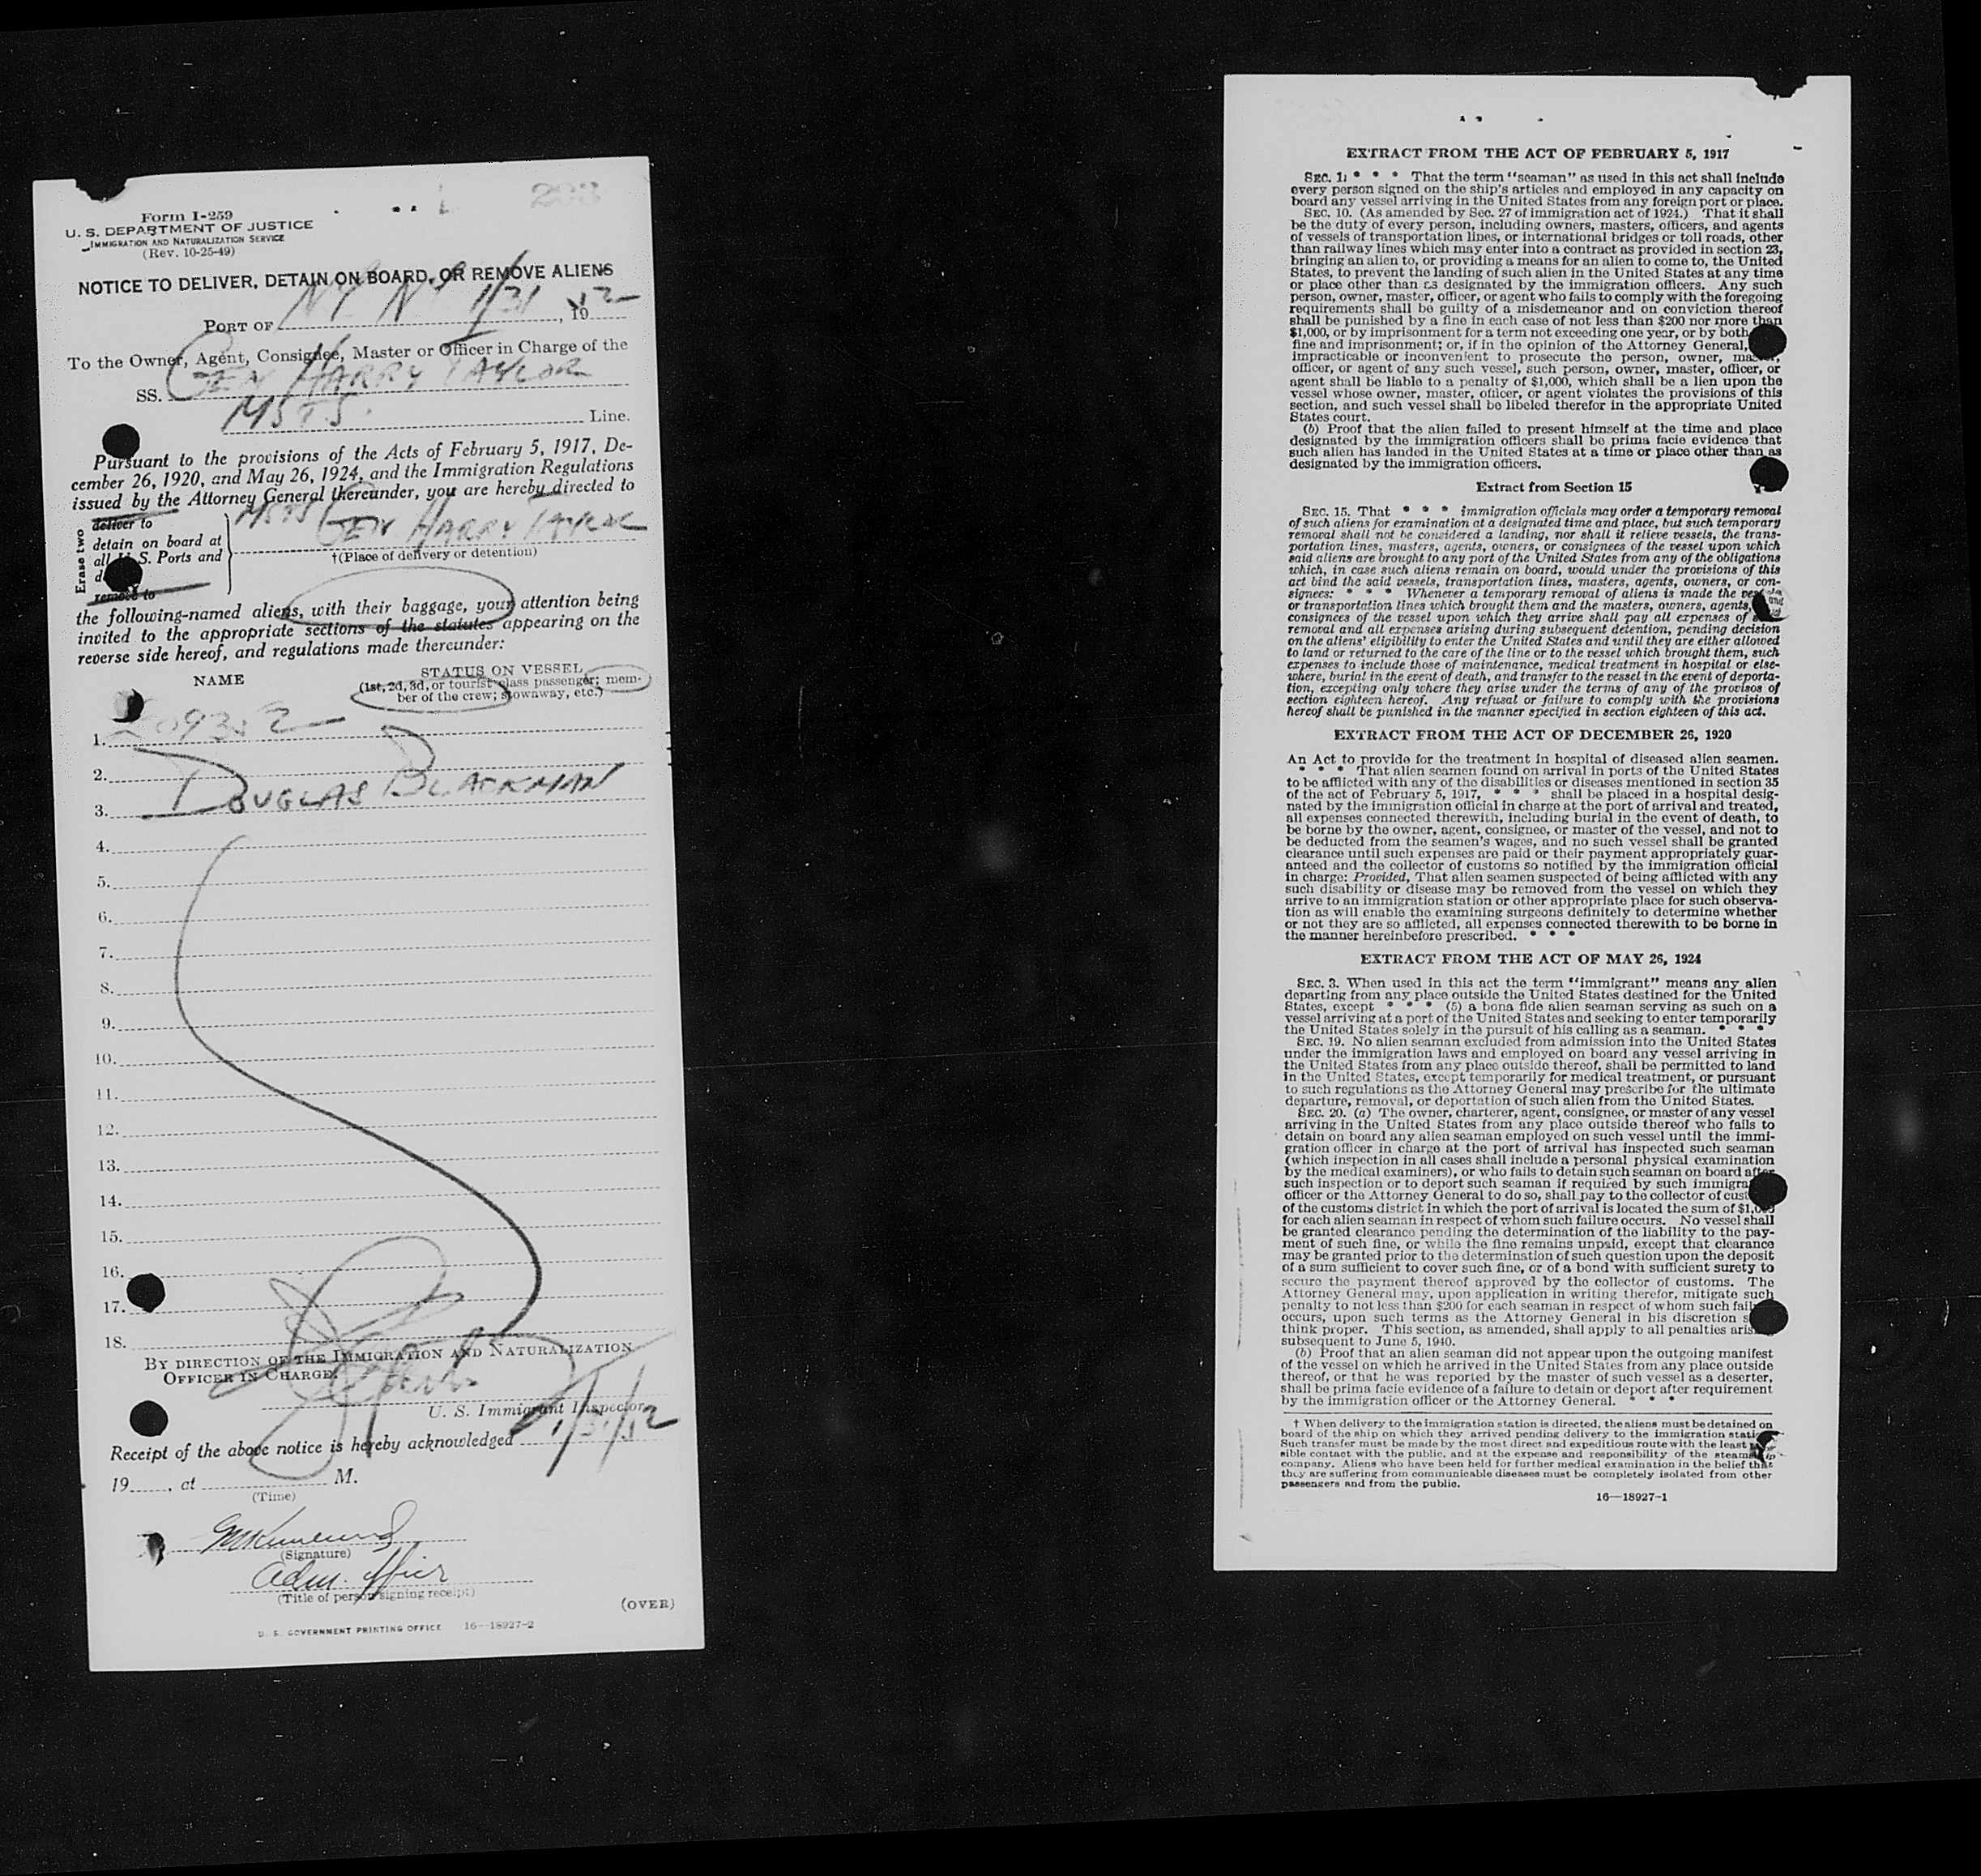 Form I-259
U. S. DEPARTMENT OF JUSTICE
IMMIGRATION AND NATURALIZATION SERVICE
(Rev. 10-25-49)
NOTICE TO DELIVER, DETAIN ON BOARD, OR REMOVE ALIENS
PORT OF NY NY 1/31, 1952
To the Owner, Agent, Consignee, Master or Officer in Charge of the
SS. GEN HARRY TAYLOR
MSTS. Line.
Pursuant to the provisions of the Acts of February 5, 1917, De-
cember 26, 1920, and May 26, 1924, and the Immigration Regulations
issued by the Attorney General thereunder, you are hereby directed to
Erase two
deliver to
detain on board at
all U.S. Ports and
remove to
MSTS GEN HARRY TAYLOR
†(Place of delivery or detention)
the following-named aliens, with their baggage, your attention being
invited to the appropriate sections of the statutes appearing on the
reverse side hereof, and regulations made thereunder:
NAME
STATUS ON VESSEL
(1st, 2d, 3d, or tourist class passenger; mem-
ber of the crew; stowaway, etc.)
1.
2.
3. DOUGLAS BLACKMAN
4.
5.
6.
7.
8.
9.
10.
11.
12.
13.
14.
15.
16.
17.
18.
BY DIRECTION OF THE IMMIGRATION AND NATURALIZATION
OFFICER IN CHARGE.
U. S. Immigrant Inspector.
Receipt of the above notice is hereby acknowledged 1/31/52
19, at M.
(Time)
(Signature)
Adm. Officer
(Title of person signing receipt)
(OVER)
U. S. GOVERNMENT PRINTING OFFICE 16—18927-2
EXTRACT FROM THE ACT OF FEBRUARY 5, 1917
SEC. 1. * * * That the term "seaman" as used in this act shall include
every person signed on the ship's articles and employed in any capacity on
board any vessel arriving in the United States from any foreign port or place.
SEC. 10. (As amended by Sec. 27 of immigration act of 1924.) That it shall
be the duty of every person, including owners, masters, officers, and agents
of vessels of transportation lines, or international bridges or toll roads, other
than railway lines which may enter into a contract as provided in section 23,
bringing an alien to, or providing a means for an alien to come to, the United
States, to prevent the landing of such alien in the United States at any time
or place other than as designated by the immigration officers. Any such
person, owner, master, officer, or agent who fails to comply with the foregoing
requirements shall be guilty of a misdemeanor and on conviction thereof
shall be punished by a fine in each case of not less than $200 nor more than
$1,000, or by imprisonment for a term not exceeding one year, or by both
fine and imprisonment; or, if in the opinion of the Attorney General,
impracticable or inconvenient to prosecute the person, owner, master,
officer, or agent of any such vessel, such person, owner, master, officer, or
agent shall be liable to a penalty of $1,000, which shall be a lien upon the
vessel whose owner, master, officer, or agent violates the provisions of this
section, and such vessel shall be libeled therefor in the appropriate United
States court.
(b) Proof that the alien failed to present himself at the time and place
designated by the immigration officers shall be prima facie evidence that
such alien has landed in the United States at a time or place other than as
designated by the immigration officers.
Extract from Section 15
SEC. 15. That * * * immigration officials may order a temporary removal
of such aliens for examination at a designated time and place, but such temporary
removal shall not be considered a landing, nor shall it relieve vessels, the trans-
portation lines, masters, agents, owners, or consignees of the vessel upon which
said aliens are brought to any port of the United States from any of the obligations
which, in case such aliens remain on board, would under the provisions of this
act bind the said vessels, transportation lines, masters, agents, owners, or con-
signees: * * * Whenever a temporary removal of aliens is made the vessels
or transportation lines which brought them and the masters, owners, agents, and
consignees of the vessel upon which they arrive shall pay all expenses of such
removal and all expenses arising during subsequent detention, pending decision
on the aliens' eligibility to enter the United States and until they are either allowed
to land or returned to the care of the line or to the vessel which brought them, such
expenses to include those of maintenance, medical treatment in hospital or else-
where, burial in the event of death, and transfer to the vessel in the event of deporta-
tion, excepting only where they arise under the terms of any of the provisos of
section eighteen hereof. Any refusal or failure to comply with the provisions
hereof shall be punished in the manner specified in section eighteen of this act.
EXTRACT FROM THE ACT OF DECEMBER 26, 1920
An Act to provide for the treatment in hospital of diseased alien seamen.
* * * That alien seamen found on arrival in ports of the United States
to be afflicted with any of the disabilities or diseases mentioned in section 35
of the act of February 5, 1917, * * * shall be placed in a hospital desig-
nated by the immigration official in charge at the port of arrival and treated,
all expenses connected therewith, including burial in the event of death, to
be borne by the owner, agent, consignee, or master of the vessel, and not to
be deducted from the seamen's wages, and no such vessel shall be granted
clearance until such expenses are paid or their payment appropriately guar-
anteed and the collector of customs so notified by the immigration official
in charge: Provided, That alien seamen suspected of being afflicted with any
such disability or disease may be removed from the vessel on which they
arrive to an immigration station or other appropriate place for such observa-
tion as will enable the examining surgeons definitely to determine whether
or not they are so afflicted, all expenses connected therewith to be borne in
the manner hereinbefore prescribed. * * *
EXTRACT FROM THE ACT OF MAY 26, 1924
SEC. 3. When used in this act the term "immigrant" means any alien
departing from any place outside the United States destined for the United
States, except * * * (5) a bona fide alien seaman serving as such on a
vessel arriving at a port of the United States and seeking to enter temporarily
the United States solely in the pursuit of his calling as a seaman. * * *
SEC. 19. No alien seaman excluded from admission into the United States
under the immigration laws and employed on board any vessel arriving in
the United States from any place outside thereof, shall be permitted to land
in the United States, except temporarily for medical treatment, or pursuant
to such regulations as the Attorney General may prescribe for the ultimate
departure, removal, or deportation of such alien from the United States.
SEC. 20. (a) The owner, charterer, agent, consignee, or master of any vessel
arriving in the United States from any place outside thereof who fails to
detain on board any alien seaman employed on such vessel until the immi-
gration officer in charge at the port of arrival has inspected such seaman
(which inspection in all cases shall include a personal physical examination
by the medical examiners), or who fails to detain such seaman on board after
such inspection or to deport such seaman if required by such immigra
officer or the Attorney General to do so, shall pay to the collector of cust
of the customs district in which the port of arrival is located the sum of $1,000
for each alien seaman in respect of whom such failure occurs. No vessel shall
be granted clearance pending the determination of the liability to the pay-
ment of such fine, or while the fine remains unpaid, except that clearance
may be granted prior to the determination of such question upon the deposit
of a sum sufficient to cover such fine, or of a bond with sufficient surety to
secure the payment thereof approved by the collector of customs. The
Attorney General may, upon application in writing therefor, mitigate such
penalty to not less than $200 for each seaman in respect of whom such fail
occurs, upon such terms as the Attorney General in his discretion s
think proper. This section, as amended, shall apply to all penalties aris
subsequent to June 5, 1940.
(b) Proof that an alien seaman did not appear upon the outgoing manifest
of the vessel on which he arrived in the United States from any place outside
thereof, or that he was reported by the master of such vessel as a deserter,
shall be prima facie evidence of a failure to detain or deport after requirement
by the immigration officer or the Attorney General. * * *
† When delivery to the immigration station is directed, the aliens must be detained on
board of the ship on which they arrived pending delivery to the immigration station.
Such transfer must be made by the most direct and expeditious route with the least pos-
sible contact with the public, and at the expense and responsibility of the steamship
company. Aliens who have been held for further medical examination in the belief that
they are suffering from communicable diseases must be completely isolated from other
passengers and from the public.
16—18927-1